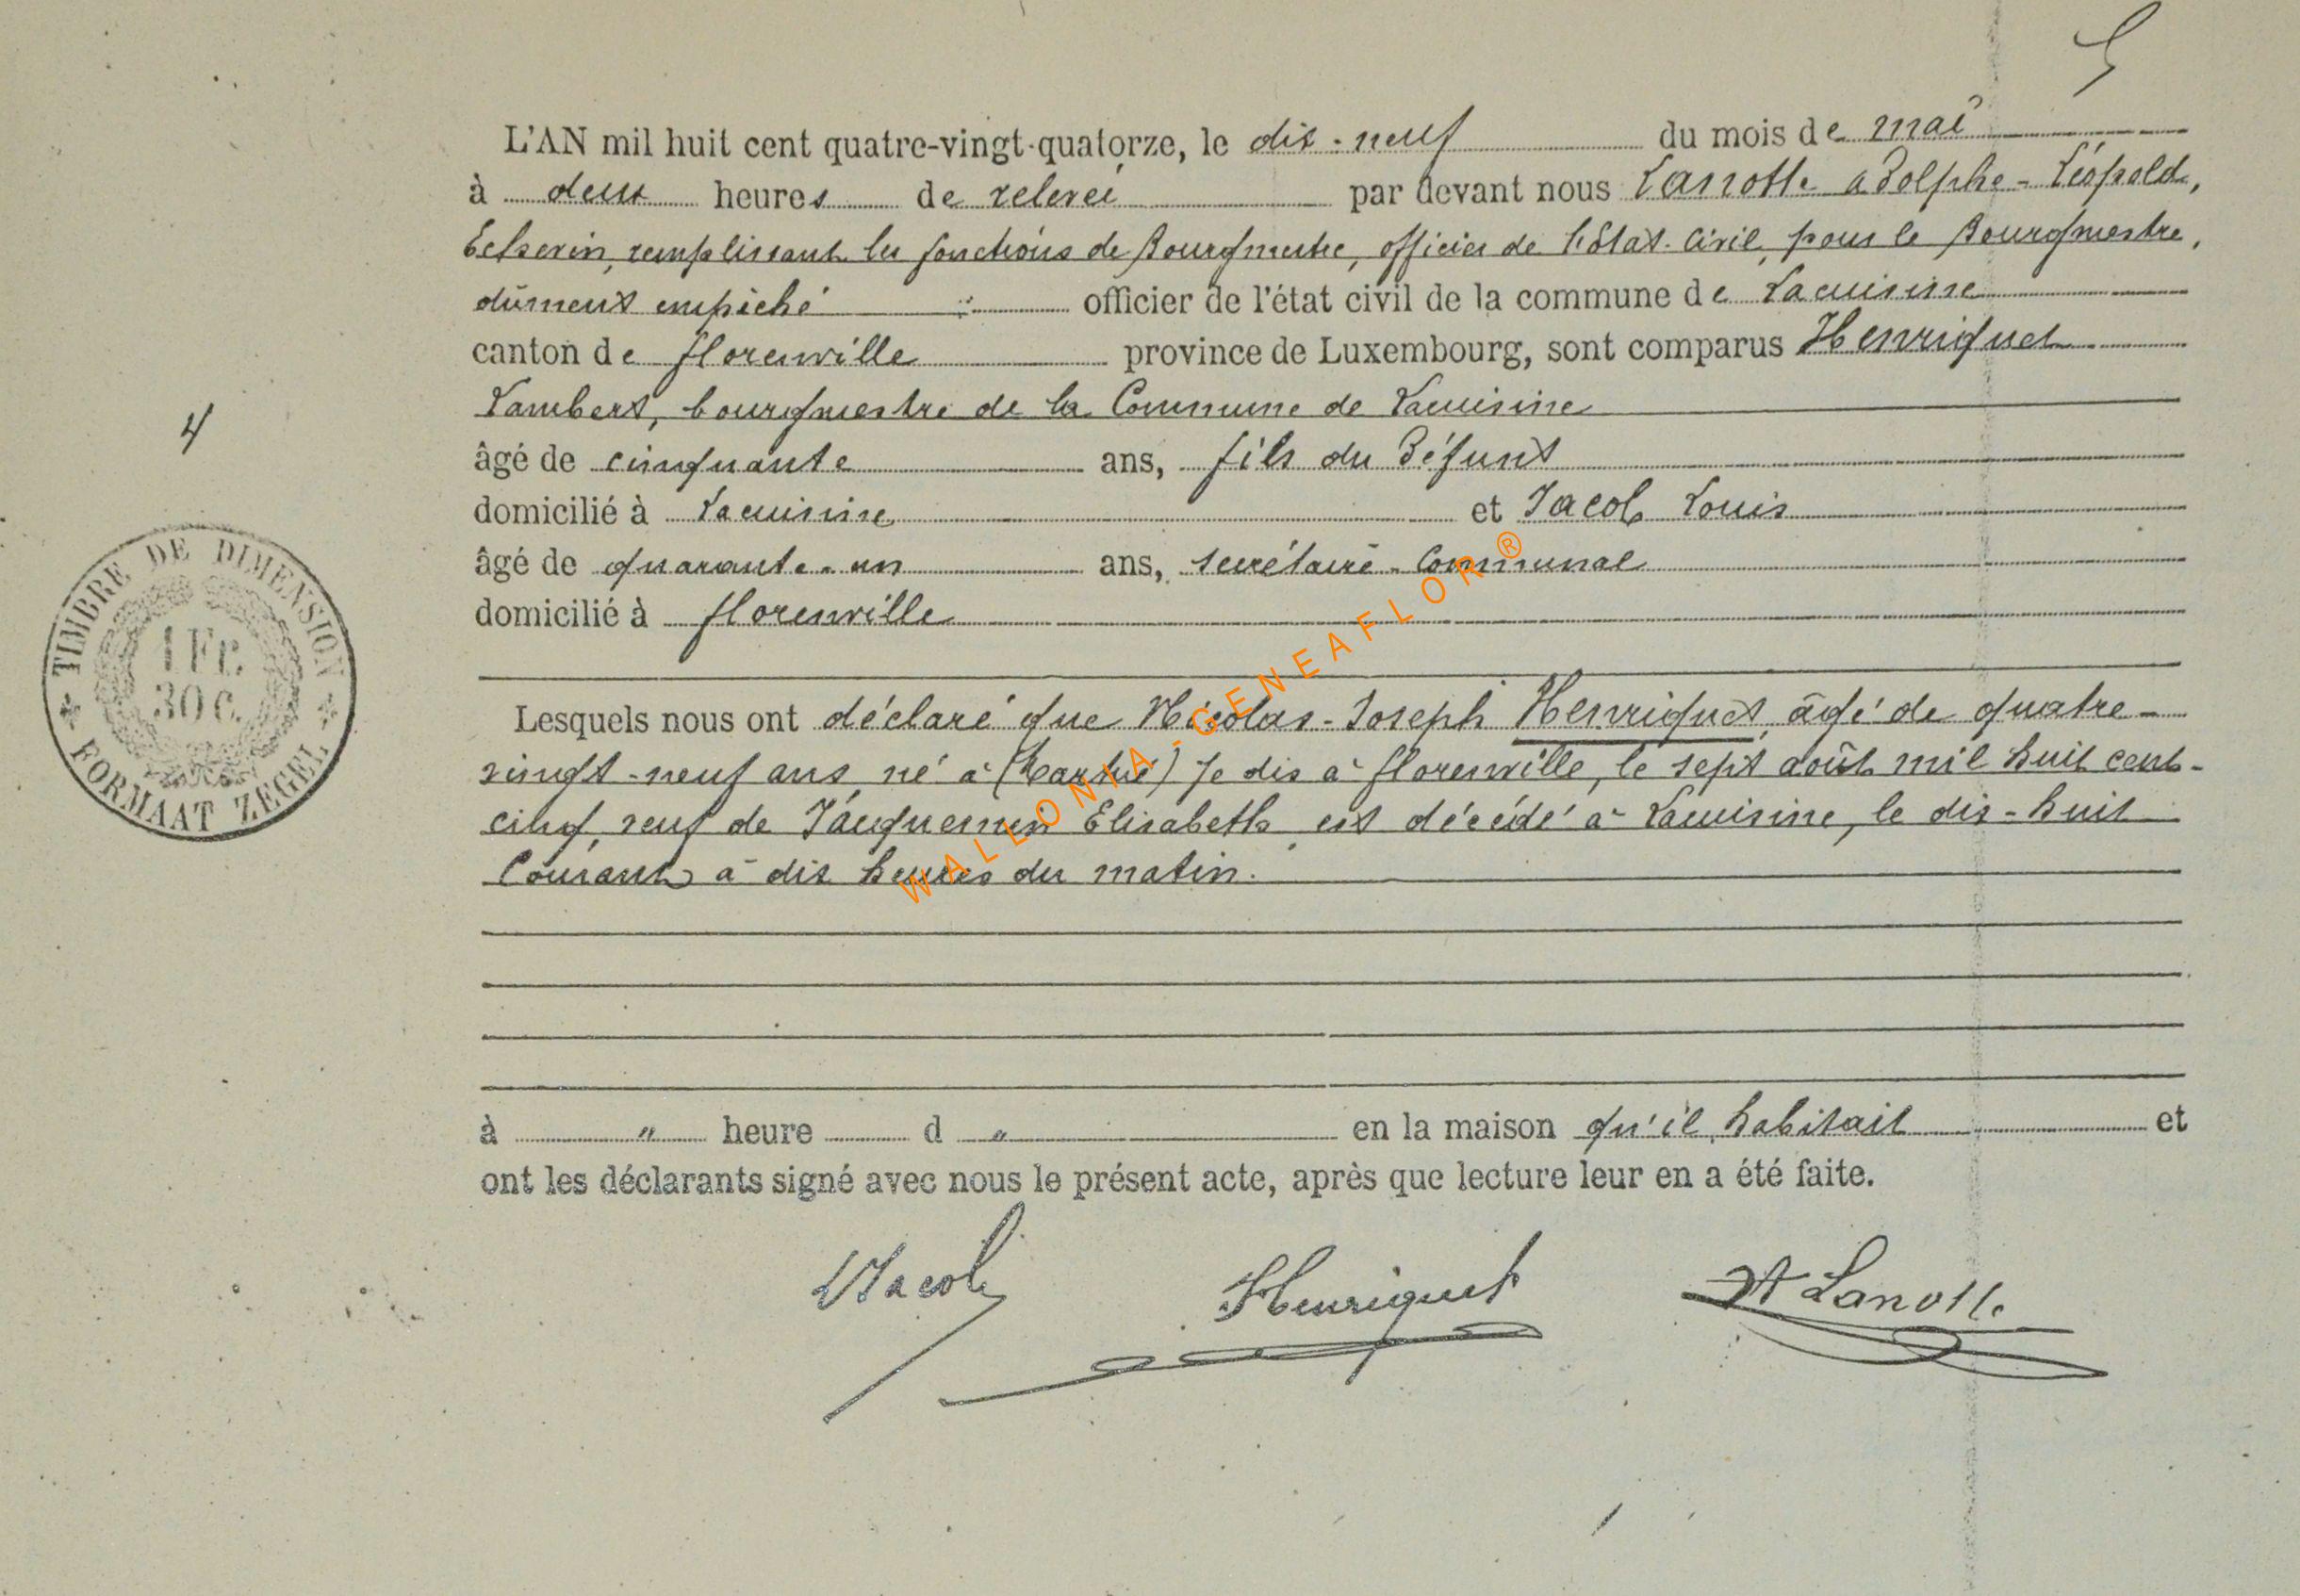 L'AN mil huit cent quatre-vingt-quatorze, le dix-neuf du mois de mai
à deux heures de relevée par devant nous Lanotte Adolphe-Léopold,
Echevin, remplissant les fonctions de Bourgmestre, officier de l'état-civil, pour le Bourgmestre,
dûment empêché " officier de l'état civil de la commune de Lacuisine
canton de Florenville province de Luxembourg, sont comparus Henriquet
Lambert, bourgmestre de la Commune de Lacuisine
4
âgé de cinquante ans, fils du Défunt
domicilié à Lacuisine et Jacob Louis
âgé de quarante-un ans, secrétaire-Communal
domicilié à Florenville
TIMBRE DE DIMENSION
1 Fr.
30 c.
FORMAAT ZEGEL
Lesquels nous ont déclaré que Nicolas-Joseph Henriquet, âgé de quatre-
vingt-neuf ans, né à (Martué) Je dis à Florenville, le sept août mil huit cent-
cinq, veuf de Jacquemin Elisabeth, est décédé à Lacuisine, le dix-huit
Courant, à dix heures du matin.
WALLONIA-GENEAFLOR®
à " heure d " en la maison qu'il habitait et
ont les déclarants signé avec nous le présent acte, après que lecture leur en a été faite.
L Jacob Henriquet A Lanotte